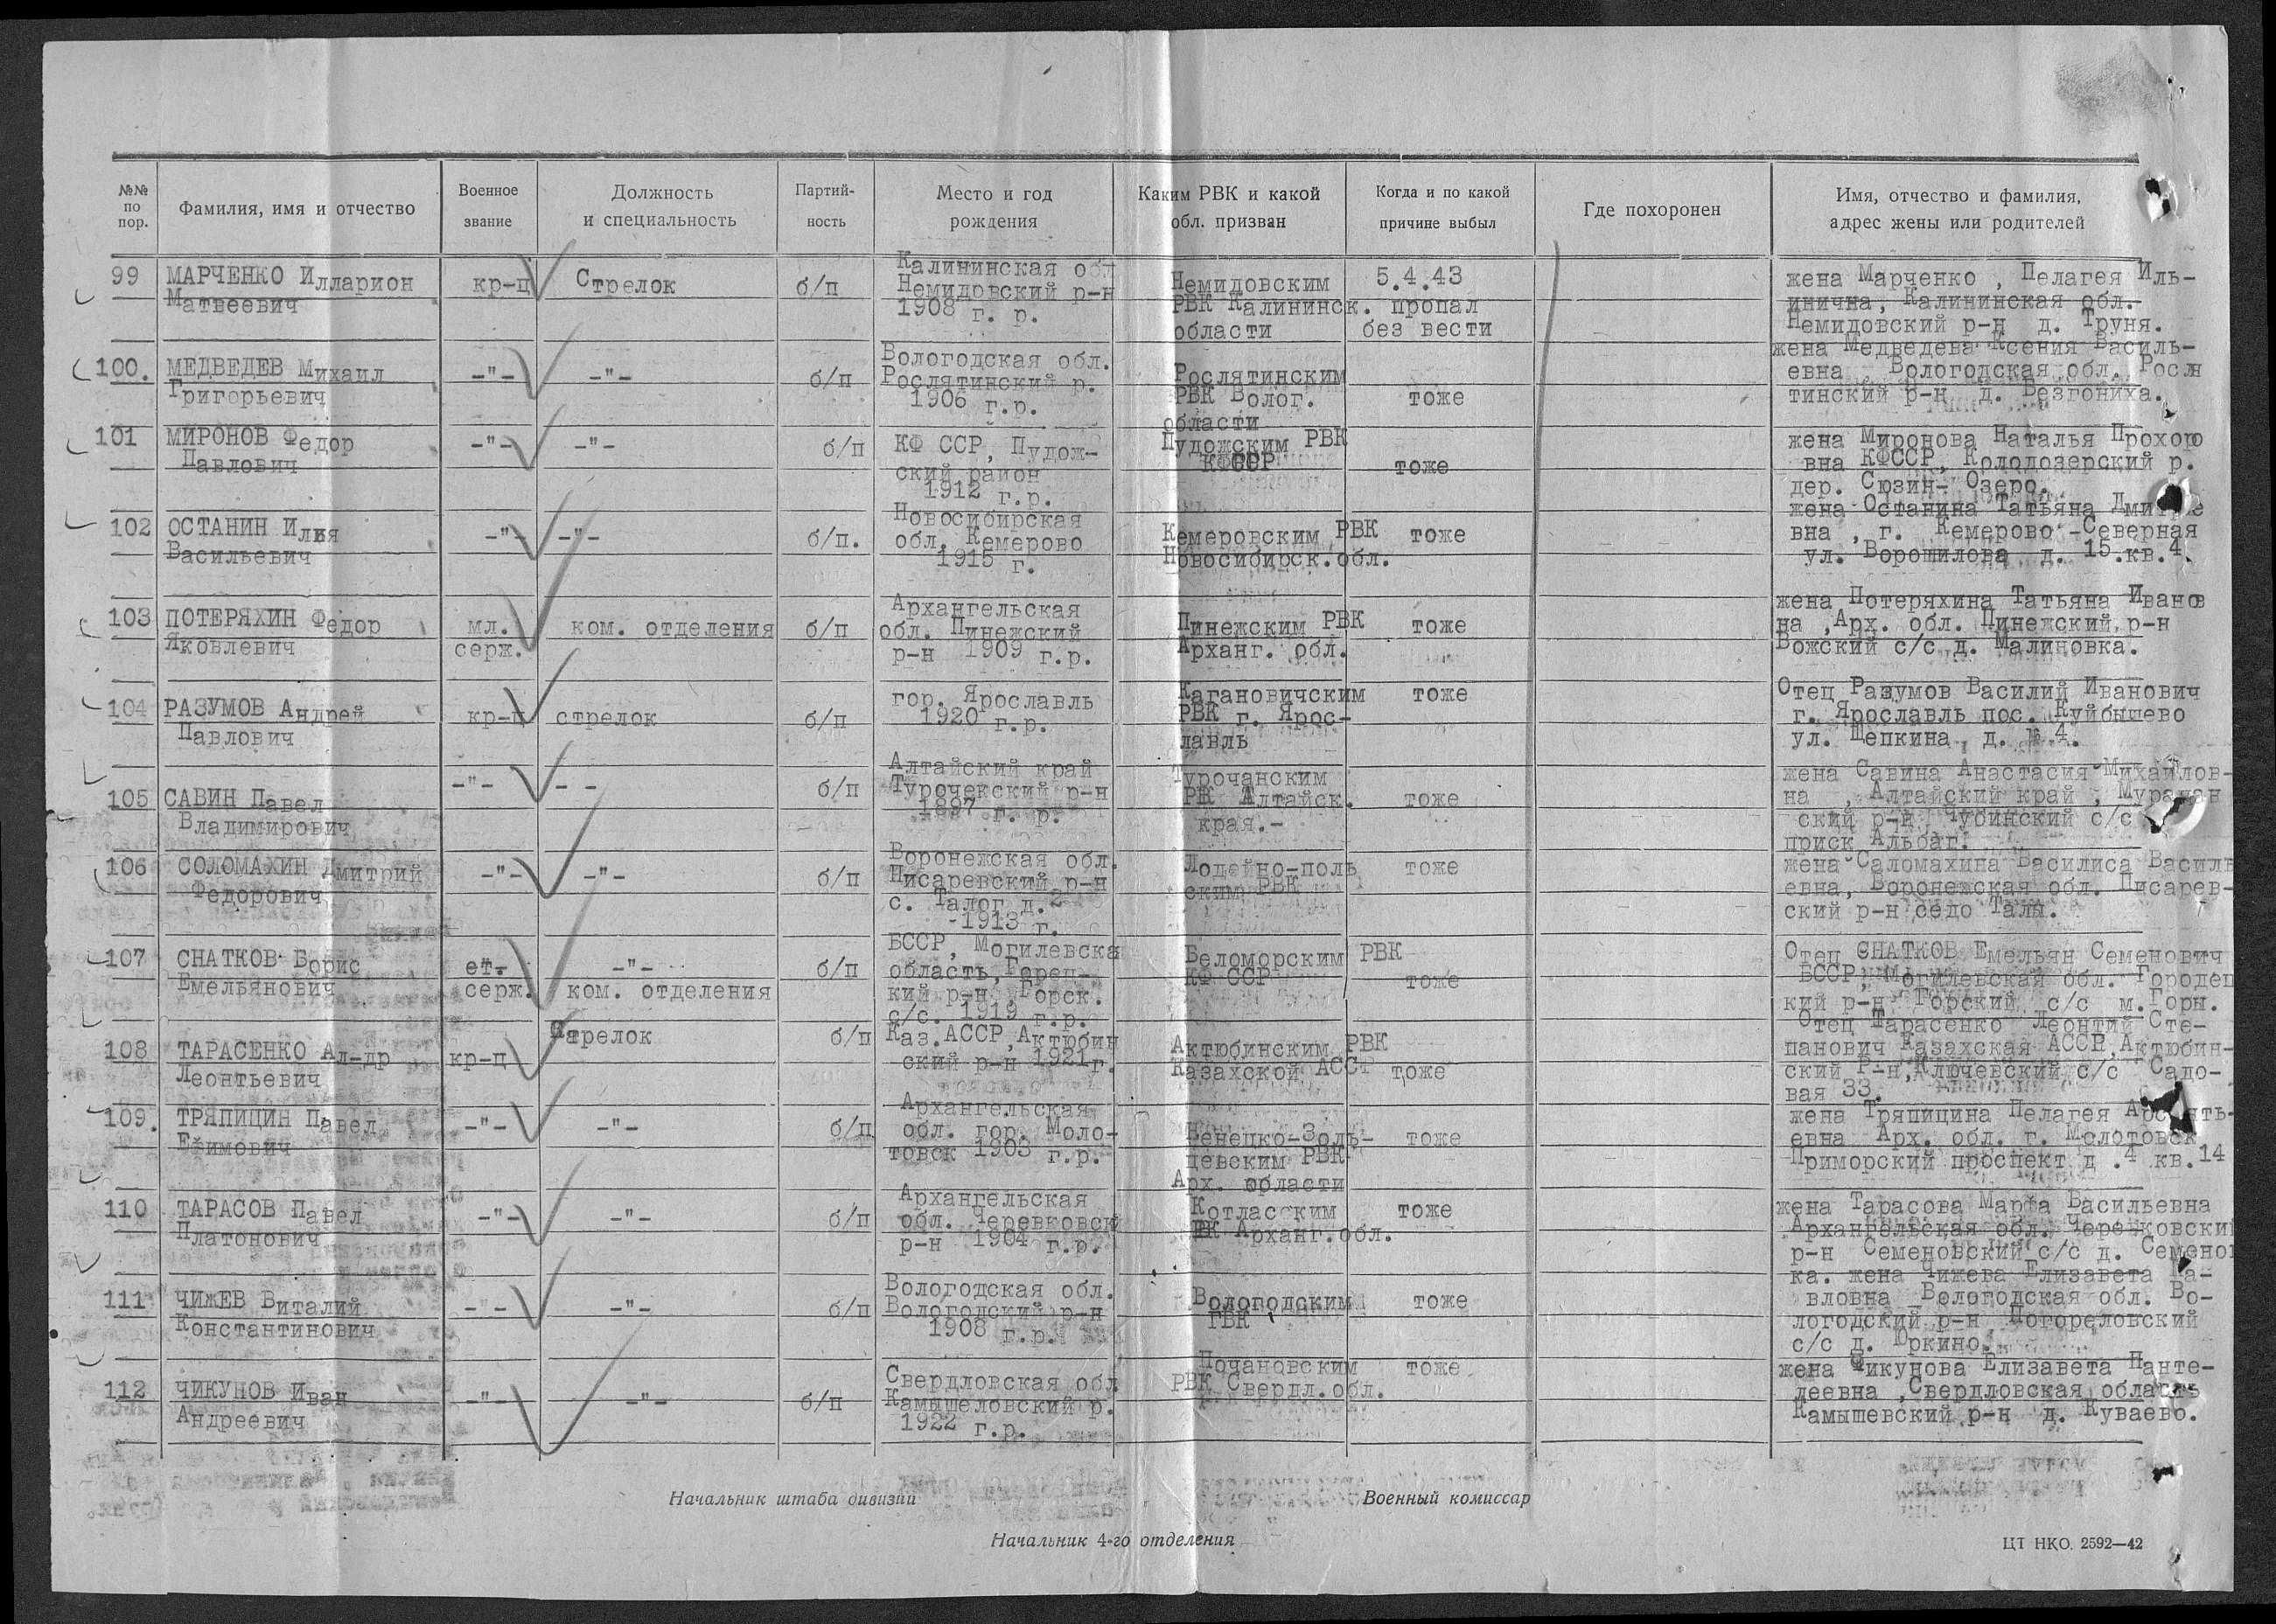 №№ по пор.
Фамилия, имя и отчество
Военное звание
Должность и специальность
Партий-ность
Место и год рождения
Каким РВК и какой обл. призван
Когда и по какой причине выбыл
Где похоронен
Имя, отчество и фамилия, адрес жены или родителей
99 МАРЧЕНКО Илларион
Матвеевич
кр-ц
Стрелок
б/п
Калининская обл
Немидовский р-н
1908 г. р.
Немидовским
РВК Калининск.
области
5.4.43
пропал
без вести
жена Марченко , Пелагея Иль-
инична, Калининская обл.
Немидовский р-н д. Труня.
100. МЕДВЕДЕВ Михаил
Григорьевич
-"-
-"-
б/п
Вологодская обл.
Рослятинский р.
1906 г.р.
Рослятинским
РВК Волог.
области
тоже
жена Медведева Ксения Василь-
евна Вологодская обл. Росля
тинский р-н д. Безгониха.
101 МИРОНОВ Федор
Павлович
-"-
-"-
б/п
КФ ССР, Пудож-
ский район
1912 г.р.
Пудожским РВК
КФССР
тоже
жена Миронова Наталья Прохоро
вна КФССР, Колодозерский р.
дер. Сюзин- Озеро.
102 ОСТАНИН Илья
Васильевич
-"-
-"-
б/п.
Новосибирская
обл. Кемерово
1915 г.
Кемеровским РВК
Новосибирск.обл.
тоже
жена Останина Татьяна
вна , г. Кемерово -Северная
ул. Ворошилова д. 15.кв.4.
103 ПОТЕРЯХИН Федор
Яковлевич
мл.
серж.
ком. отделения
б/п
Архангельская
обл. Пинежский
р-н 1909 г.р.
Пинежским РВК
Арханг. обл.
тоже
жена Потеряхина Татьяна Иванов
на ,Арх. обл. Пинежский р-н
Вожский с/с д. Малиновка.
104 РАЗУМОВ Андрей
Павлович
кр-ц
стрелок
б/п
гор. Ярославль
1920 г.р.
Кагановичским
РВК г. Ярос-
лавль
тоже
Отец Разумов Василий Иванович
г. Ярославль пос. Куйбышево
ул. Щепкина д. 4.
105 САВИН Павел
Владимирович
-"-
- -
б/п
Алтайский край
Турочекский р-н
1897 г. р.
Турочанским
РВК Алтайск.
края.-
тоже
жена Савина Анастасия Михайлов-
на , Алтайский край ,
ский р-н Чубинский с/с
приск Альбаг.
106 СОЛОМАХИН Дмитрий
Федорович
-"-
-"-
б/п
Воронежская обл.
Писаревский р-н
с. Талог д.2
-1913 г.
Лодейно-поль
ским РВК
тоже
жена Саломахина Василиса Василь
евна, Воронежская обл. Писарев-
ский р-н село Талы.
107 СНАТКОВ Борис
Емельянович
ст.
серж.
-"-
ком. отделения
б/п
БССР, Могилевска
область,
кий р-н, Горск.
с/с. 1919 г.р.
Беломорским РВК
КФ ССР
тоже
Отец СНАТКОВ Емельян Семенович
БССР, Могилевская обл. Городец
кий р-н Горский с/с м. Горы.
108 ТАРАСЕНКО Ал-др
Леонтьевич
кр-ц
Стрелок
б/п
Каз.АССР,Актюбин
ский р-н 1921г.
Актюбинским РВК
Казахской АССР
тоже
Отец Тарасенко Леонтий Сте-
панович Казахская АССР,Актюбин-
ский Р-н,Ключевский с/с Садо-
вая 33.
109. ТРЯПИЦИН Павел
Ефимович
-"-
-"-
б/п
Архангельская
обл. гор. Моло-
товск 1903 г.р.
Ненецко-Золь-
цевским РВК
Арх. области
тоже
жена Тряпицина Пелагея
евна Арх. обл. г. Молотовск
Приморский проспект д .4 кв.14
110 ТАРАСОВ Павел
Платонович
-"-
-"-
б/п
Архангельская
обл. Черевковский
р-н 1904 г.р.
Котласским
РВК Арханг.обл.
тоже
жена Тарасова Марфа Васильевна
Архангельская обл. Черевковский
р-н Семеновский с/с д. Семенов
ка. жена Чижева Елизавета Па-
111 ЧИЖЕВ Виталий
Константинович
-"-
-"-
б/п
Вологодская обл.
Вологодский р-н
1908 г.р.
Вологодским
ГВК
тоже
вловна Вологодская обл. Во-
логодский р-н Погореловский
с/с д. Юркино.
112 ЧИКУНОВ Иван
Андреевич
-"-
-"-
б/п
Свердловская обл
Камышеловский р.
1922 г.р.
Почановским
РВК Свердл.обл.
тоже
жена Чикунова Елизавета Панте-
леевна ,Свердловская область
Камышевский р-н д. Куваево.
Начальник штаба дивизии
Военный комиссар
Начальник 4-го отделения
ЦТ НКО. 2592—42